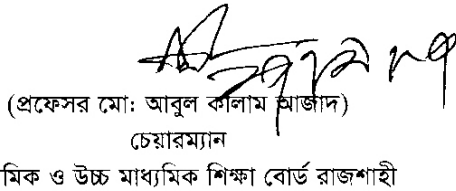 (প্রফেসর মো: আবুল কালাম আজাদ)
চেয়ারম্যান
মিক ও উচ্চ মাধ্যমিক শিক্ষা বোর্ড রাজশাহী